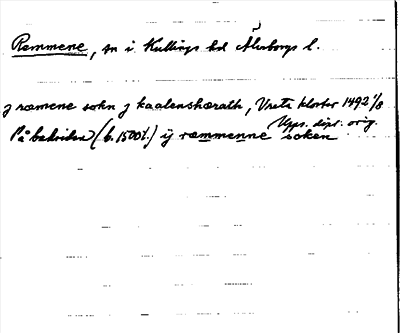 Remmene, sn i Kullings hd Älvsborgs l.
j ræmene sokn j kaalenshæradh, Vreta kloster 1492 1/8
Upps. dipl. orig.
På baksidan (b. 1500t.) ij ræmmenne soken